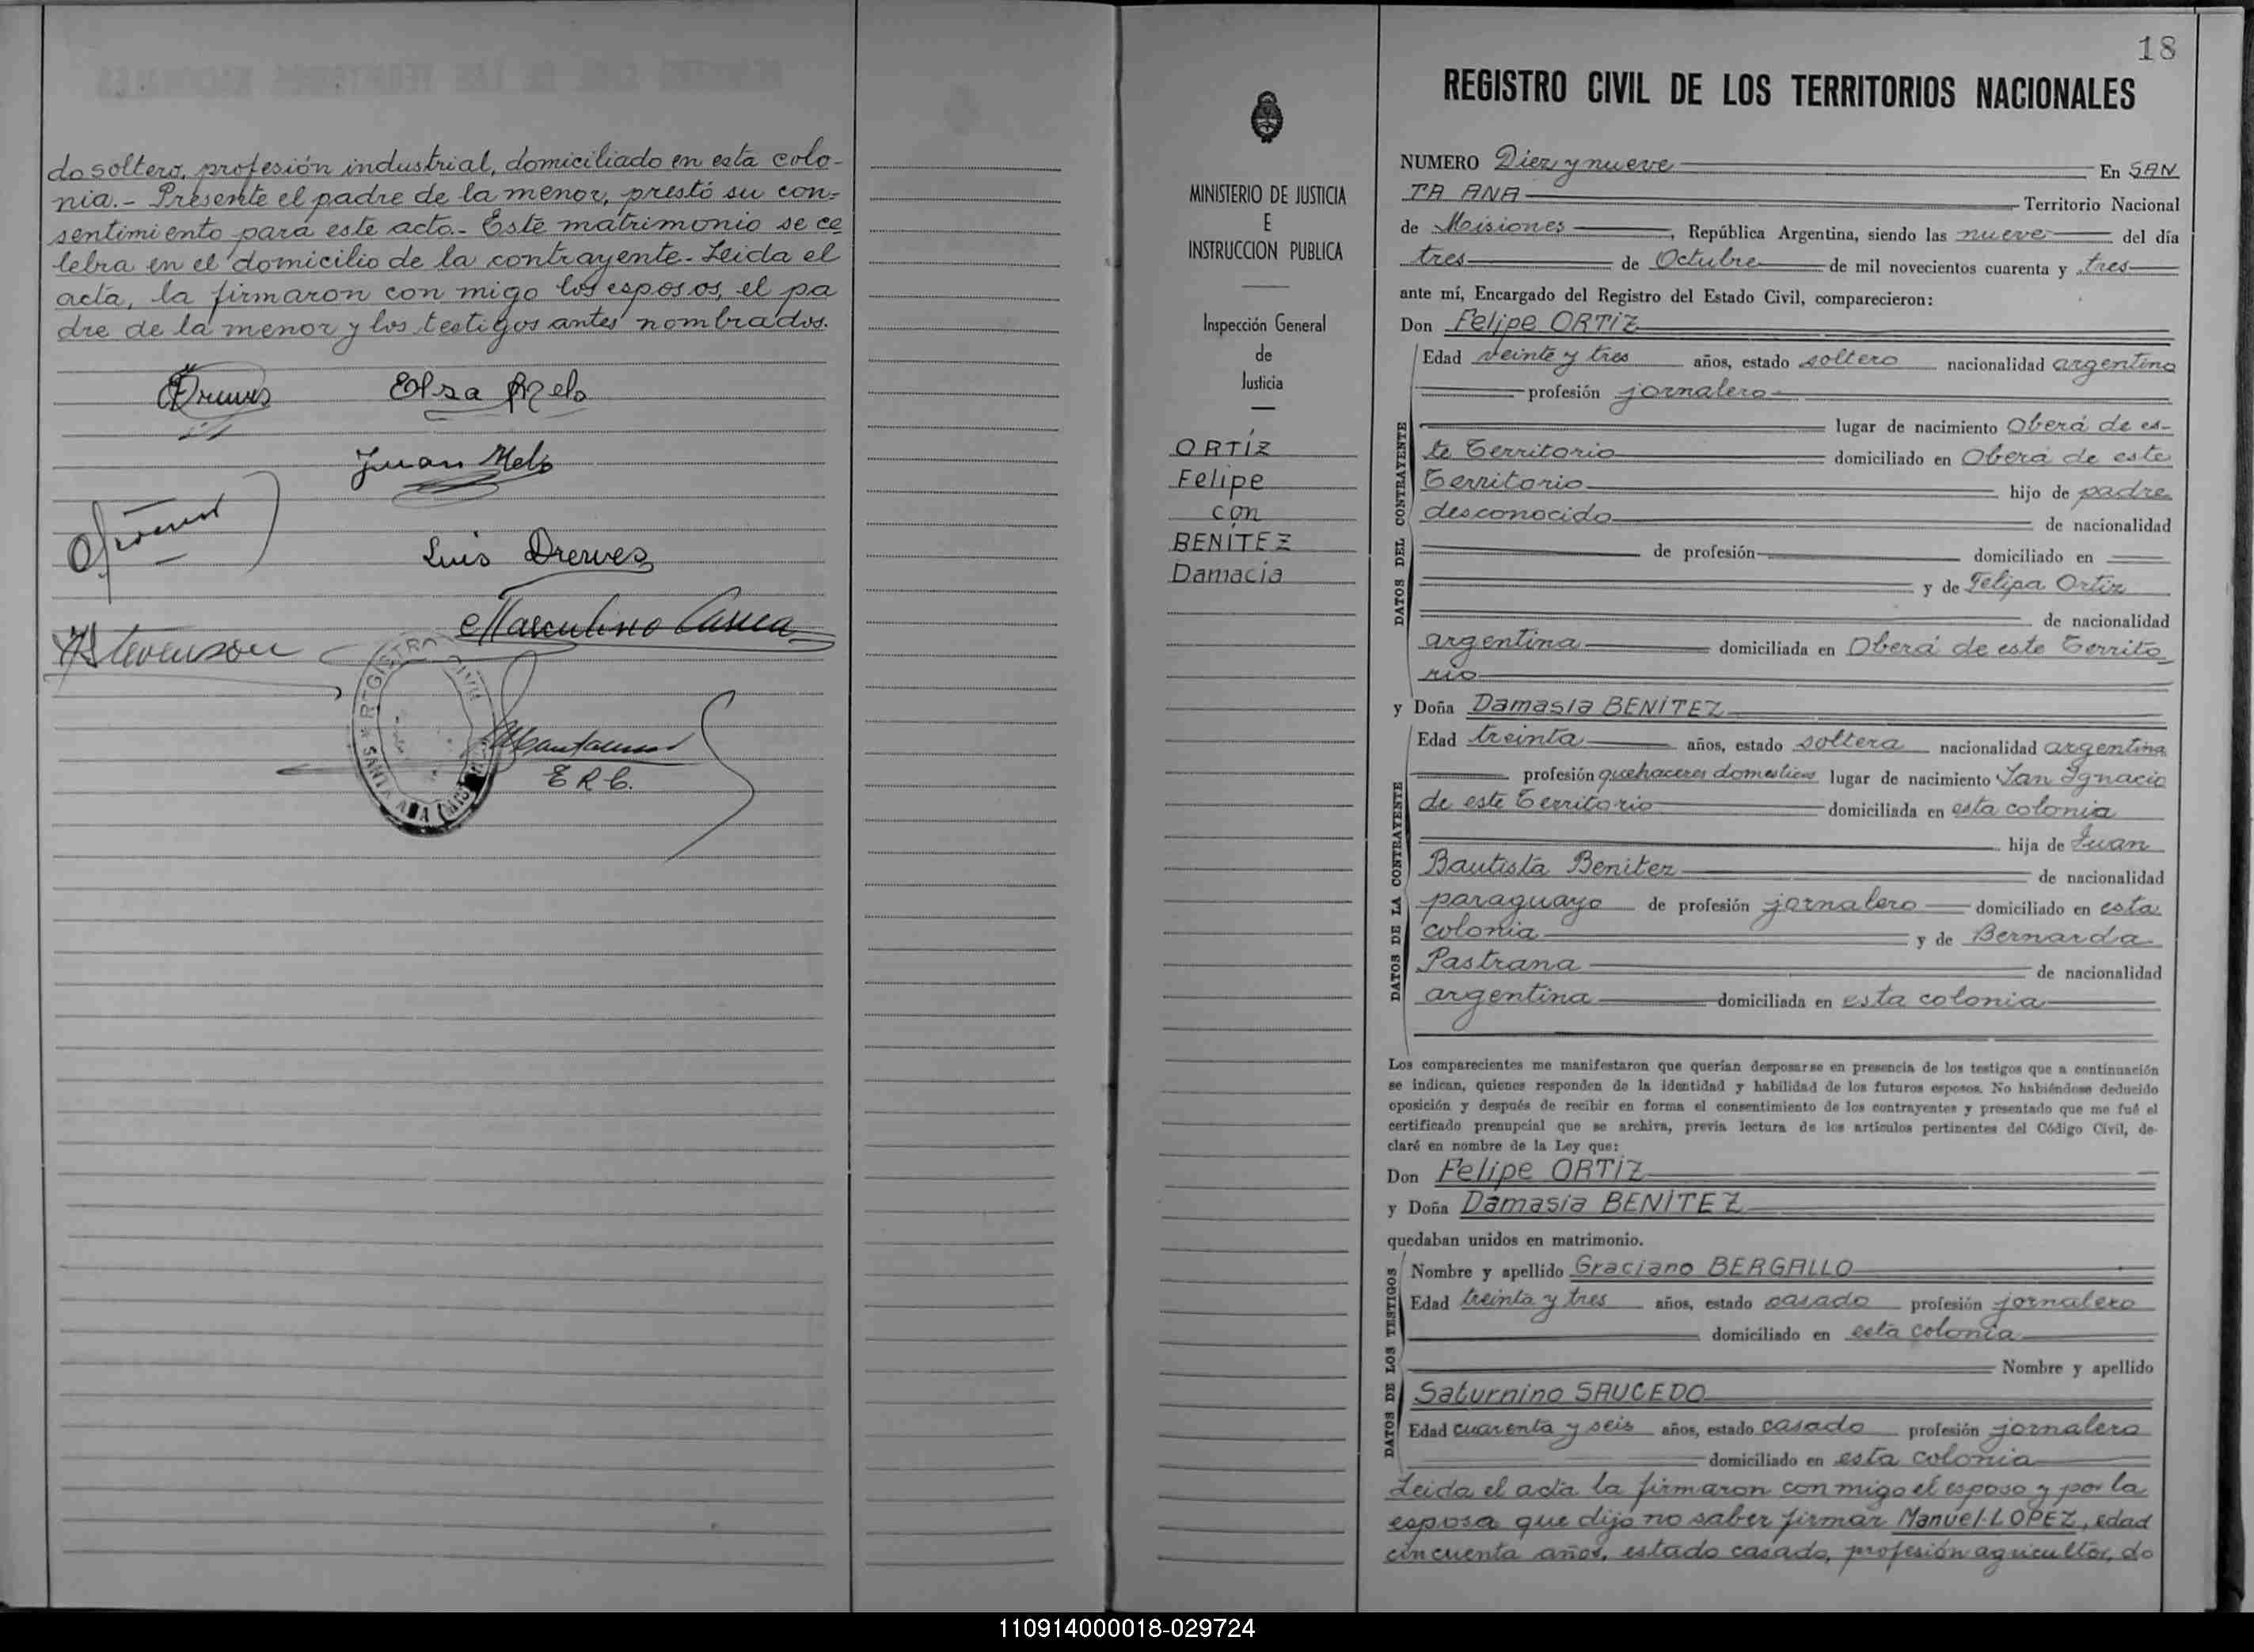 do soltero, profesión industrial, domiciliado en esta colo-
nia.- Presente el padre de la menor, prestó su con-
sentimiento para este acto.- Este matrimonio se ce
lebra en el domicilio de la contrayente.- Leida el
acta, la firmaron con migo los esposos, el pa
dre de la menor y los testigos antes nombrados.
Elsa Melo
Juan Melo
Luis Drewes
Stevenson
REGISTRO CIVIL
SANTA ANA
E R C.
18
REGISTRO CIVIL DE LOS TERRITORIOS NACIONALES
MINISTERIO DE JUSTICIA
E
INSTRUCCION PUBLICA
Inspección General
de
Justicia
ORTÍZ
Felipe
con
BENÍTEZ
Damacia
NUMERO Diez y nueve En SAN
TA ANA Territorio Nacional
de Misiones, República Argentina, siendo las nueve del día
tres de Octubre de mil novecientos cuarenta y tres
ante mí, Encargado del Registro del Estado Civil, comparecieron:
Don Felipe ORTIZ
DATOS DEL CONTRAYENTE
Edad veinte y tres años, estado soltero nacionalidad argentino
profesión jornalero
lugar de nacimiento Oberá de es-
te Territorio domiciliado en Oberá de este
Territorio hijo de padre
desconocido de nacionalidad
de profesión domiciliado en
y de Felipa Ortiz
de nacionalidad
argentina domiciliada en Oberá de este Territo
rio
y Doña Damasia BENÍTEZ
DATOS DE LA CONTRAYENTE
Edad treinta años, estado soltera nacionalidad argentina
profesión quehaceres domesticos lugar de nacimiento San Ignacio
de este Territorio domiciliada en esta colonia
hija de Juan
Bautista Benitez de nacionalidad
paraguayo de profesión jornalero domiciliado en esta
colonia y de Bernarda
Pastrana de nacionalidad
argentina domiciliada en esta colonia
Los comparecientes me manifestaron que querían desposarse en presencia de los testigos que a continuación
se indican, quienes responden de la identidad y habilidad de los futuros esposos. No habiéndose deducido
oposición y después de recibir en forma el consentimiento de los contrayentes y presentado que me fué el
certificado prenupcial que se archiva, previa lectura de los artículos pertinentes del Código Civil, de-
claré en nombre de la Ley que:
Don Felipe ORTÍZ
y Doña Damasia BENÍTEZ
quedaban unidos en matrimonio.
DATOS DE LOS TESTIGOS
Nombre y apellido Graciano BERGALLO
Edad treinta y tres años, estado casado profesión jornalero
domiciliado en esta colonia
Nombre y apellido
Saturnino SAUCEDO
Edad cuarenta y seis años, estado casado profesión jornalero
domiciliado en esta colonia
Leida el acta la firmaron con migo el esposo y por la
esposa que dijo no saber firmar Manuel LOPEZ, edad
cincuenta años, estado casado, profesión agricultor, do
110914000018-029724